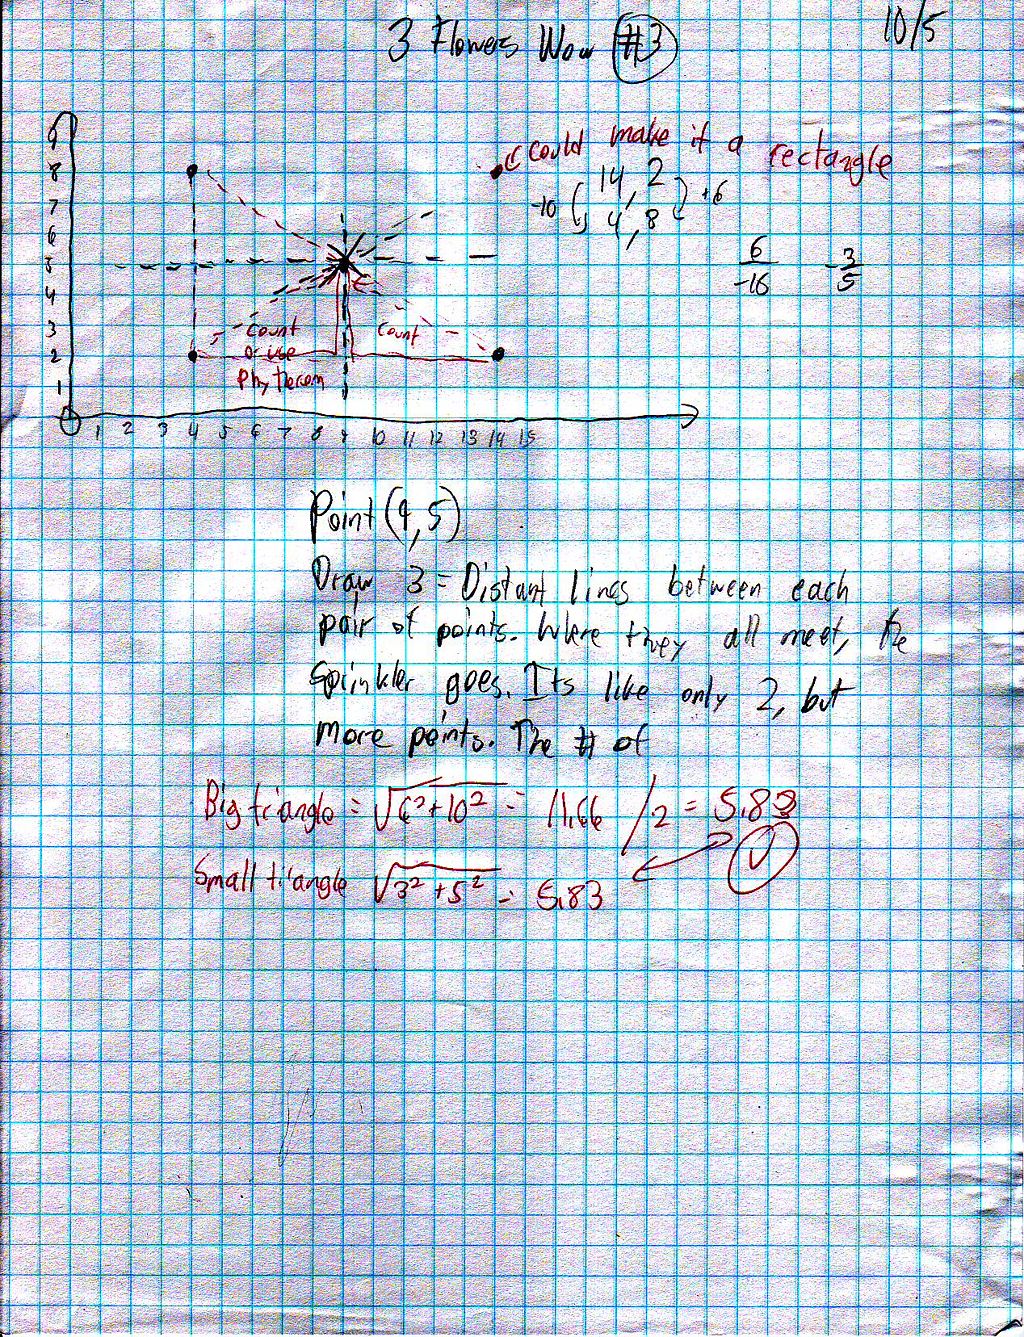 3 Flowers Wow #3
10/5
could make it a rectangle
14, 2
-10
+6
4, 8
6
-16
-3
5
9
8
7
6
5
4
3
2
1
count
or use
Phytheram
count
1 2 3 4 5 6 7 8 9 10 11 12 13 14 15
Point (9,5)
Draw 3 = Distant lines between each
pair of points. Where they all meet, the
sprinkler goes. Its like only 2, but
more points. The # of
Big triangle = √6²+10² = 11.66 /2 = 5.83
Small triangle √3²+5² = 5.83